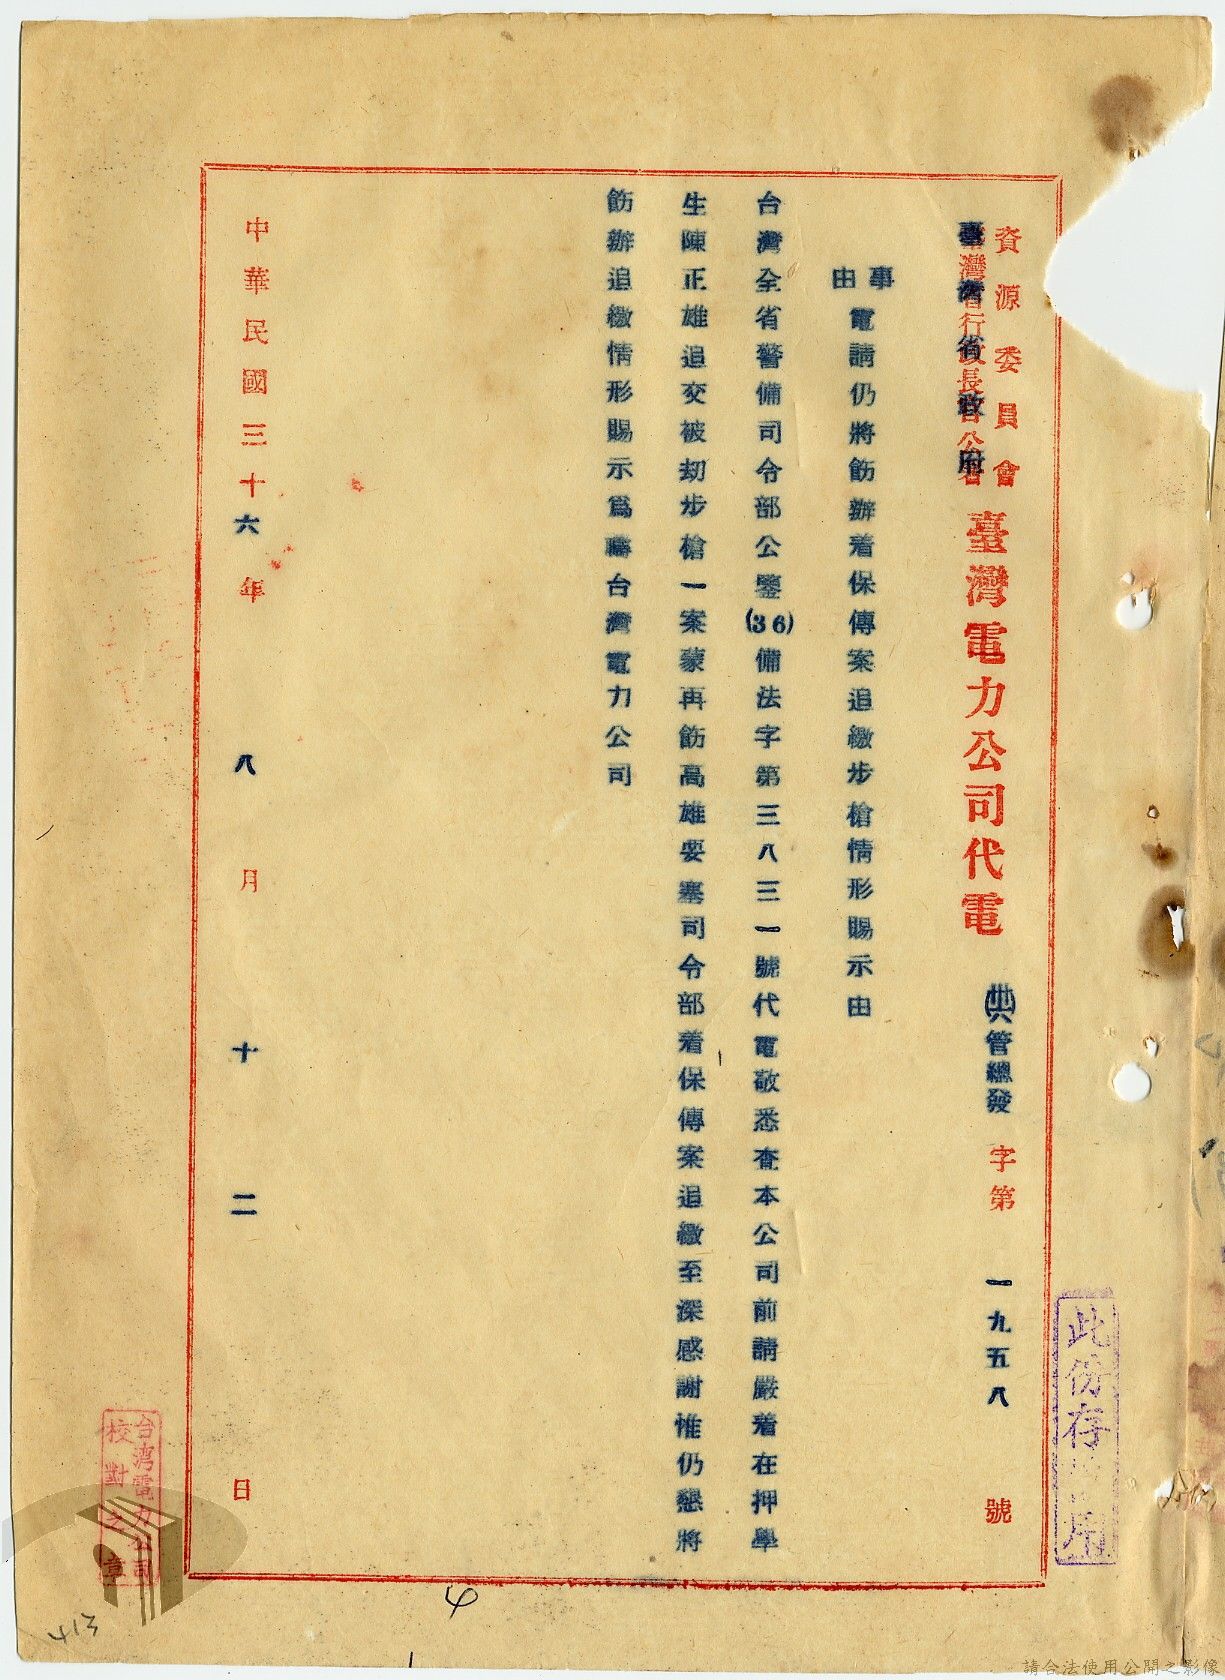 資源委員會
臺灣省政府
臺灣電力公司代電
(卅六)管總發字第一九五八號
事由
電請仍將飭辦着保傳案追繳步槍情形賜示由
台灣全省警備司令部公鑒(36)備法字第三八三一號代電敬悉查本公司前請嚴着在押學
生陳正雄追交被刧步槍一案蒙再飭高雄要塞司令部着保傳案追繳至深感謝惟仍懇將
飭辦追繳情形賜示為禱台灣電力公司
中華民國三十六年八月十二日
此份存
用
台湾電力公司
校對之章
4
413
請合法使用公開之影像